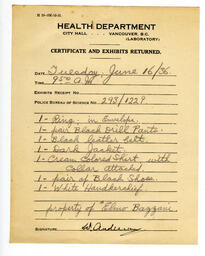 HEALTH DEPARTMENT
CITY HALL VANCOUVER, B.C.
(LABORATORY)
CERTIFICATE AND EXHIBITS RETURNED.
DATE Tuesday, June 16/36.
TIME 9:50 A.M.
EXHIBITS RECEIPT No.
POLICE BUREAU OF SCIENCE No. 293/1229
1 - Ring, in Envelope.
1 - pair Black Drill Pants.
1 - Black leather belt
1 - Dark Jacket
1 - Cream Colored Shirt, with
Collar attached
1 - pair of Black Shoes
1 - White Handkerchief.
property of "Elmo Bazzani
SIGNATURE